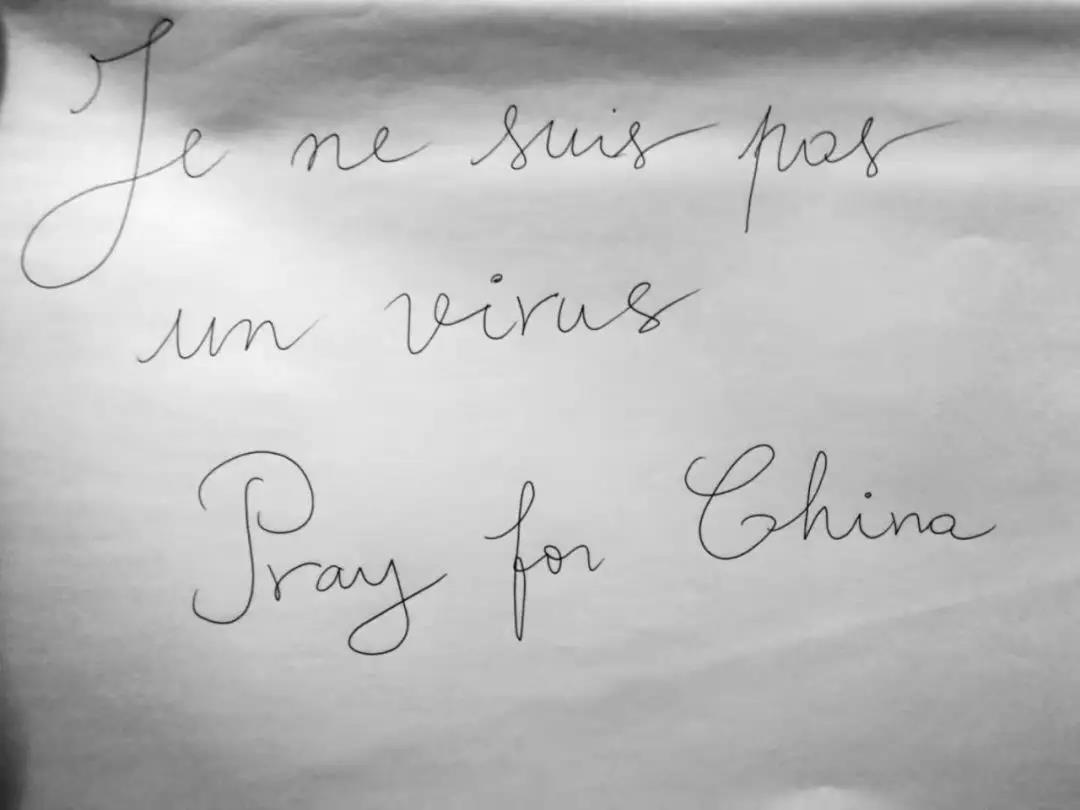 Je ne suis pas
un virus
Pray for China